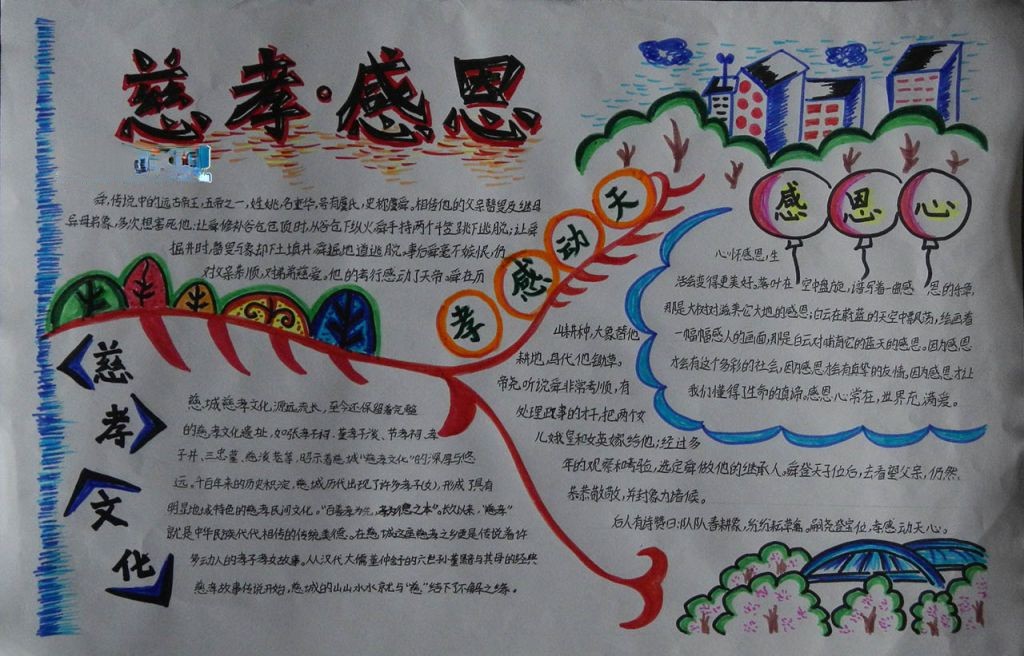 慈孝·感恩
舜,传说中的远古帝王,五帝之一,姓姚,名重华,号有虞氏,史称虞舜。相传他的父亲瞽叟及继母
异母弟象,多次想害死他:让舜修补谷仓仓顶时,从谷仓下纵火,舜手持两个斗笠跳下逃脱;让舜
掘井时,瞽叟与象却下土填井,舜掘地道逃脱。事后舜毫不嫉恨,仍
对父亲孝顺,对弟弟慈爱。他的孝行感动了天帝。舜在历
孝感动天
山耕种,大象替他
耕地,鸟代他锄草。
帝尧听说舜非常孝顺,有
处理政事的才干,把两个女
儿娥皇和女英嫁给他;经过多
年的观察和考验,选定舜做他的继承人。舜登天子位后,去看望父亲,仍然
恭恭敬敬,并封象为诸侯。
后人有诗赞曰:队队春耕象,纷纷耘草禽。嗣尧登宝位,孝感动天心。
感恩心
心怀感恩,生
活会变得更美好,落叶在空中盘旋,谱写着一曲感恩的乐章,
那是大树对滋养它大地的感恩;白云在蔚蓝的天空中飘荡,绘画着
一幅幅感人的画面,那是白云对哺育它的蓝天的感恩。因为感恩
才会有这个多彩的社会,因为感恩才会有真挚的友情,因为感恩才让
我们懂得了生命的真谛。感恩心常在,世界充满爱。
慈孝文化
慈城慈孝文化源远流长,至今还保留着完整
的慈孝文化遗址,如张孝子祠、董孝子溪、节孝祠、孝
子井、三忠墓、慈湖
远。千百年来的历史积淀,慈城历代出现了许多孝子(女),形成了具有
明显地域特色的慈孝民间文化。“百善孝为先,孝为德之本”。长久以来,“慈孝”
就是中华民族代代相传的传统美德。在慈城这座慈孝之乡更是传说着许
多动人的孝子孝女故事。从汉代大儒董仲舒的六世孙董黯与其母的经典
慈孝故事传说开始,慈城的山山水水就与“慈”结下了不解之缘。